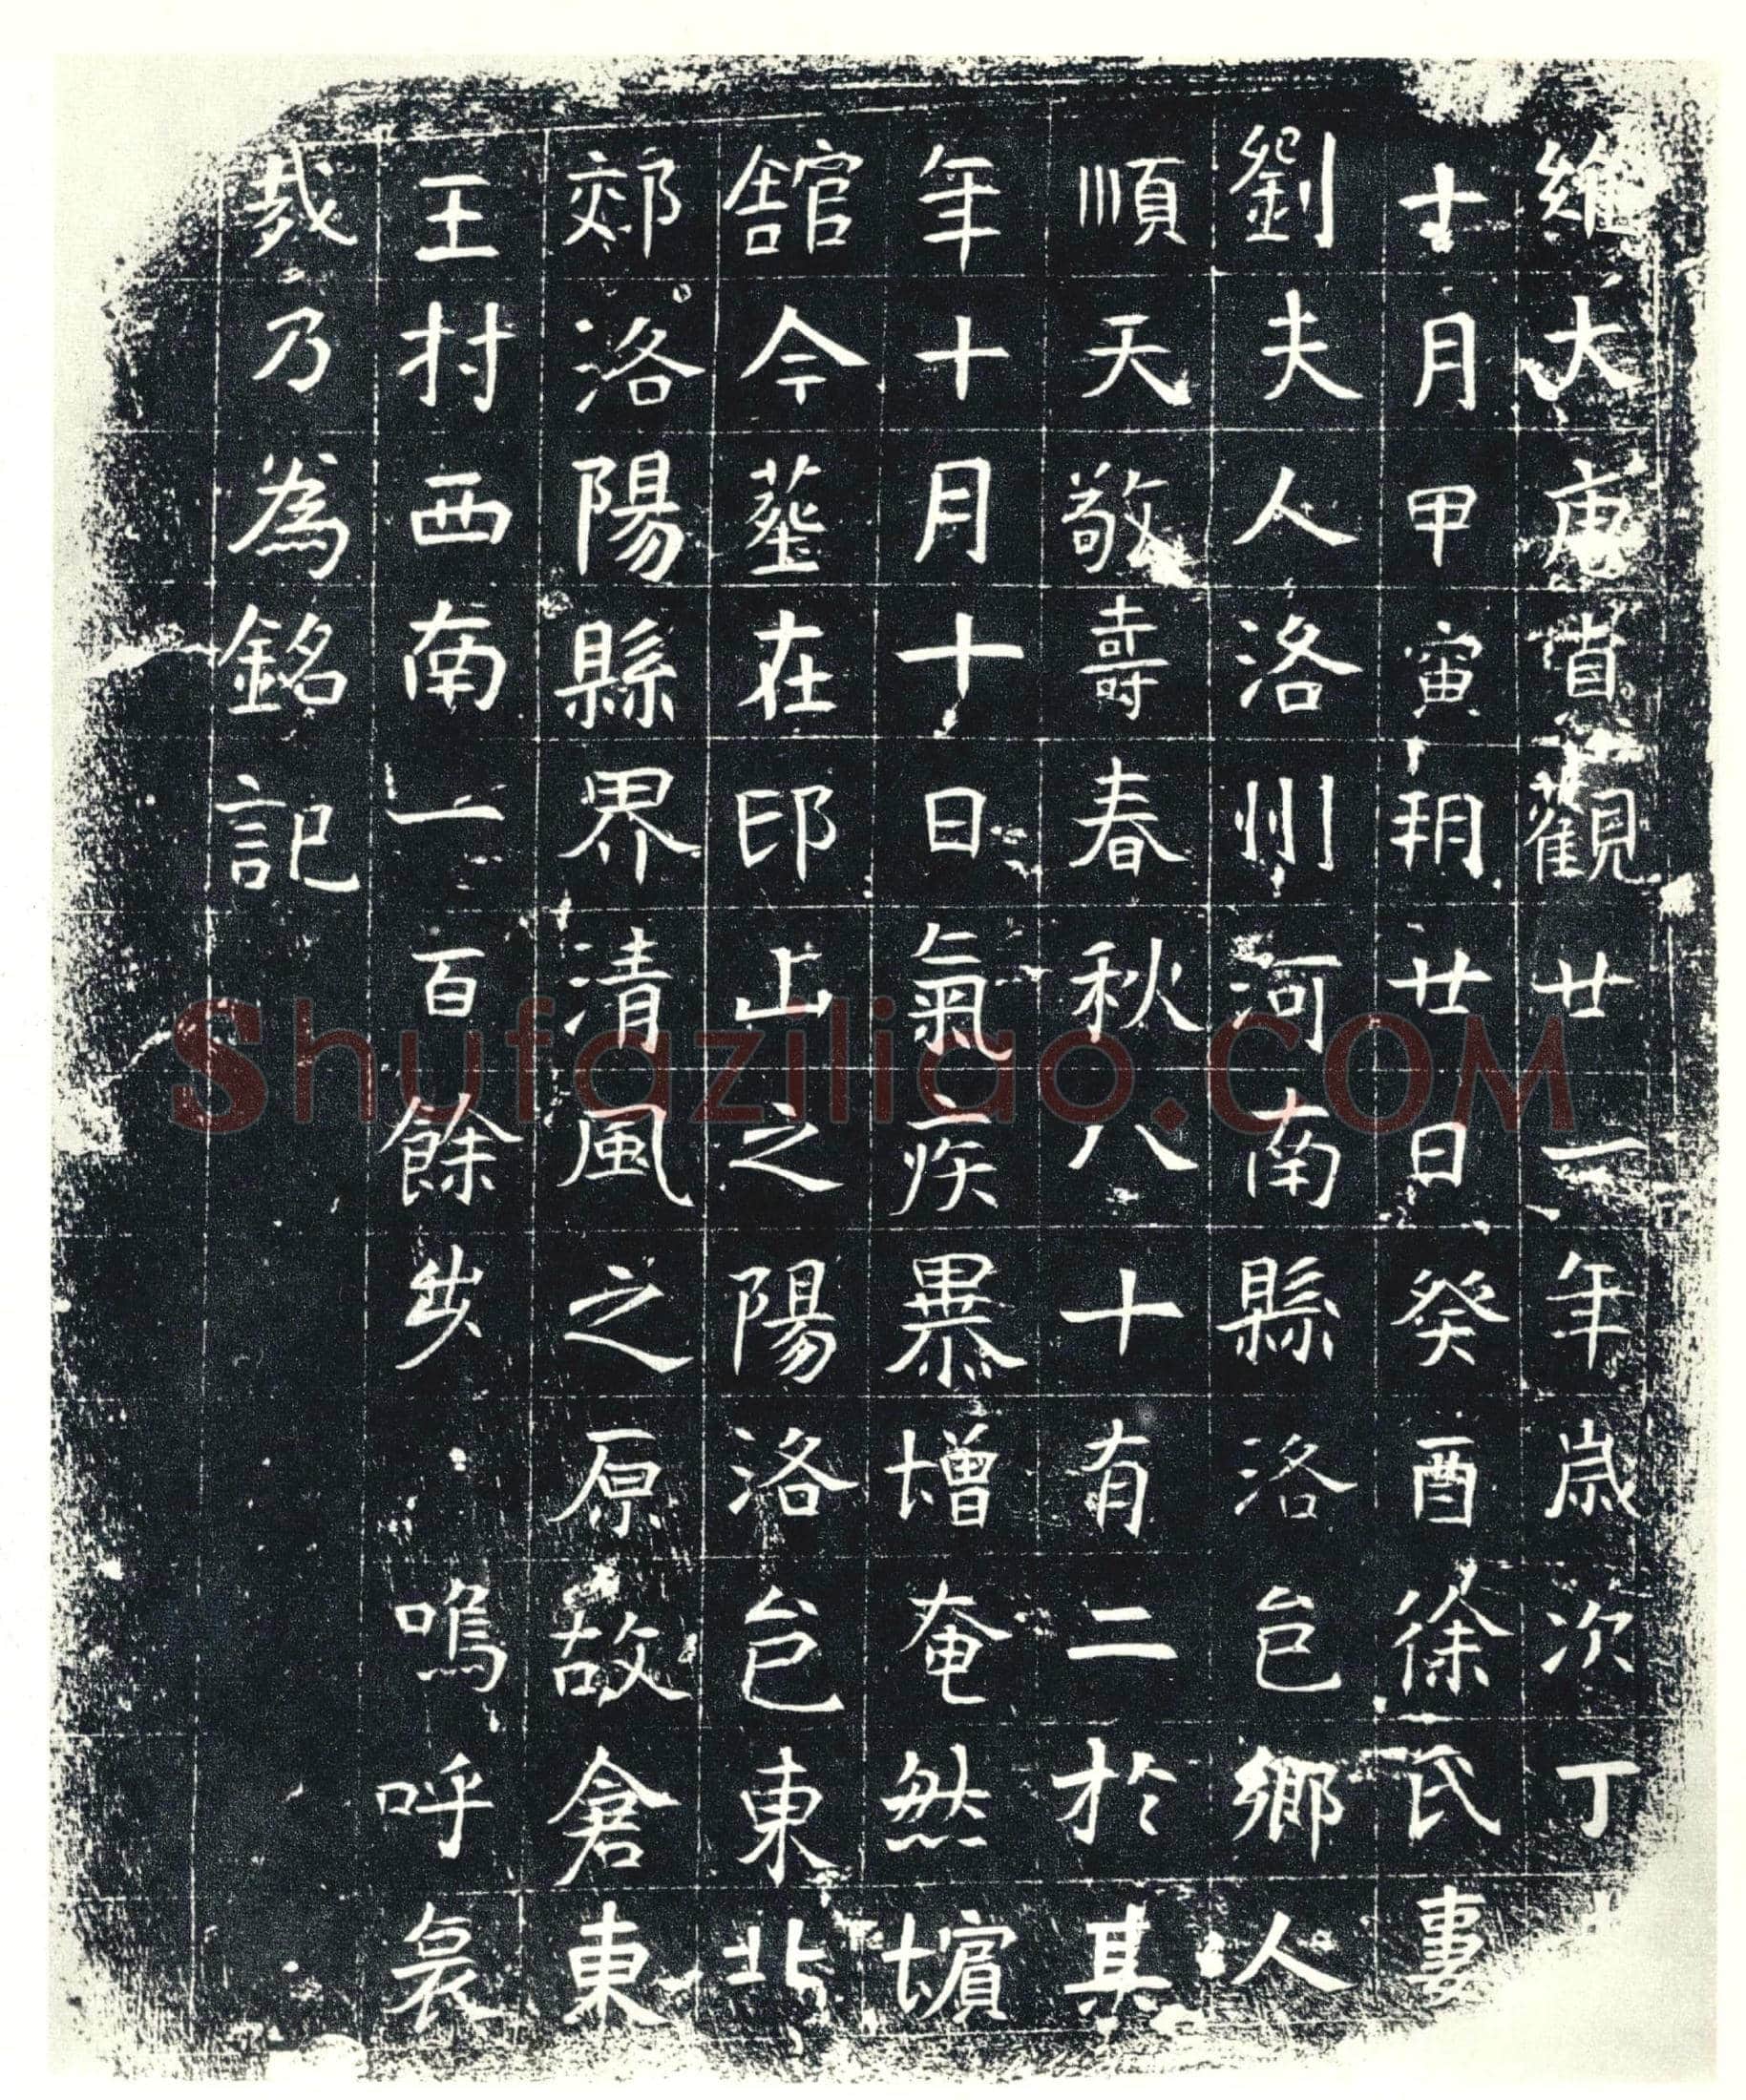 維大唐貞觀廿一年歲次丁
十月甲寅朔廿日癸酉徐氏妻
劉夫人洛州河南縣洛邑鄉人
順天敬壽春秋八十有二於其
年十月十日氣疾暴增奄然殯
舘今葬在邙山之陽洛邑東北
郊洛陽縣界清風之原故倉東
王村西南一百餘步嗚呼哀
哉乃為銘記
Shufaziliao.COM